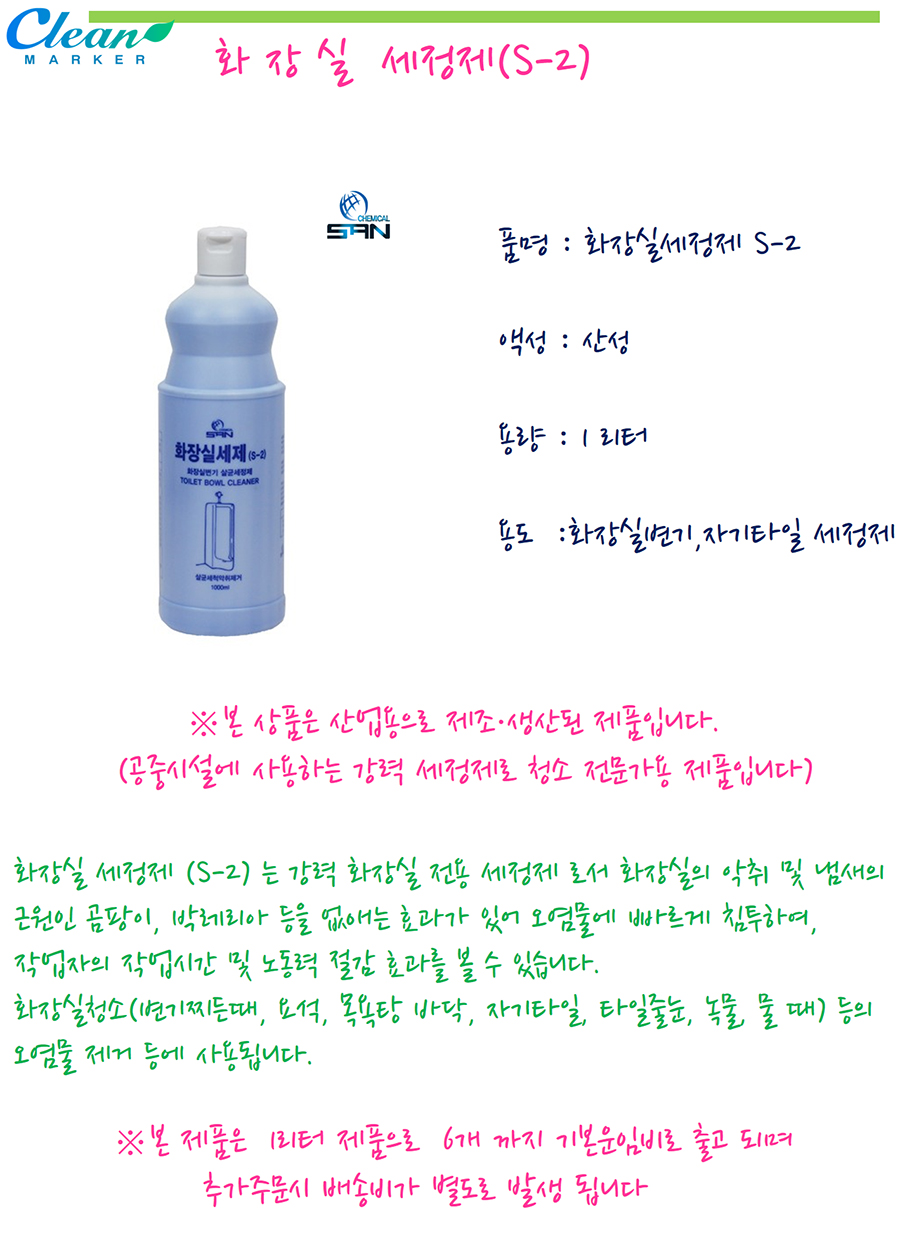 Clean
MARKER
화 장 실 세정제(S-2)
CHEMICAL
STAN
품명 : 화장실세정제 S-2
액성 : 산성
용량 : 1 리터
용도 :화장실변기,자기타일 세정제
화장실세제(S-2)
화장실변기 살균세정제
TOILET BOWL CLEANER
살균세척악취제거
1000ml
※본 상품은 산업용으로 제조·생산된 제품입니다.
(공중시설에 사용하는 강력 세정제로 청소 전문가용 제품입니다)
화장실 세정제 (S-2) 는 강력 화장실 전용 세정제 로서 화장실의 악취 및 냄새의
근원인 곰팡이, 박레리아 등을 없애는 효과가 있어 오염물에 빠르게 침투하여,
작업자의 작업시간 및 노동력 절감 효과를 볼 수 있습니다.
화장실청소(변기찌든때, 요석, 목욕탕 바닥, 자기타일, 타일줄눈, 녹물, 물 때) 등의
오염물 제거 등에 사용됩니다.
※본 제품은 1리터 제품으로 6개 까지 기본운임비로 출고 되며
추가주문시 배송비가 별도로 발생 됩니다